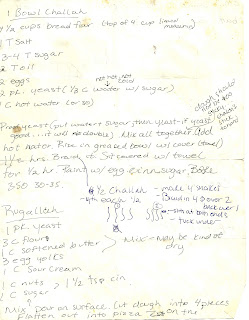 1 Bowl Challah
4 1/2 cups bread flour (top of 4 cup line)
1 T Salt
3-4 T sugar
2 T oil
2 eggs not hot, not cold
2 pk. yeast (1/2 C water w/ sugar)
1 C hot water (or so)
Proof yeast (put water & sugar, then yeast - if yeast
good... it will Mix all together. Add
hot water. Rise in greased bowl w/ cover (towel)
1 1/2 hrs. Braid & Sit covered w/ towel
for 1/2 hr. Paint w/ egg & cinn. sugar. Bake
350 30-35.
dough should
be
1/2 Challah - made 4 snakes
- 8th each 1/2 - Braid in 4 over 2
- back over 1
- smooth ends
- tuck under
Rugallah
1 pk yeast
3 C flour
1 C softened butter > Mix - may be kind of
dry
3 egg yolks
1 C sour cream
1 C nuts
1 C sugar > 1 1/2 tsp cin
Mix. Put on surface. Cut dough into 4 pieces
Flatten out into pizza on the